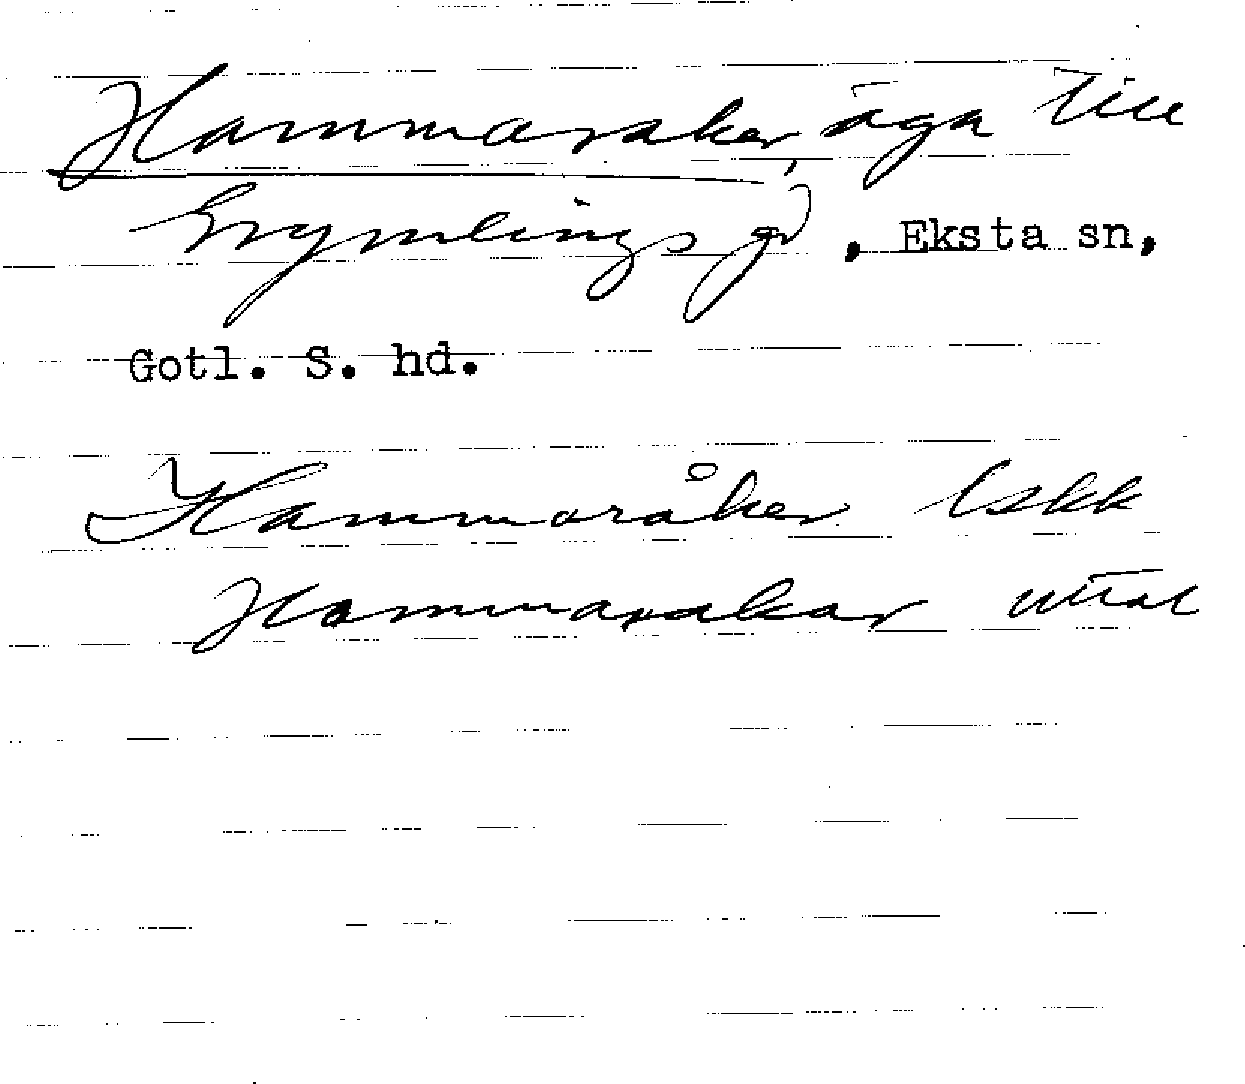 Hammaraker, äga till
Grymlings gd, Eksta sn,
Gotl. S. hd.
Hammaråker lskk
Hammarakar uttal